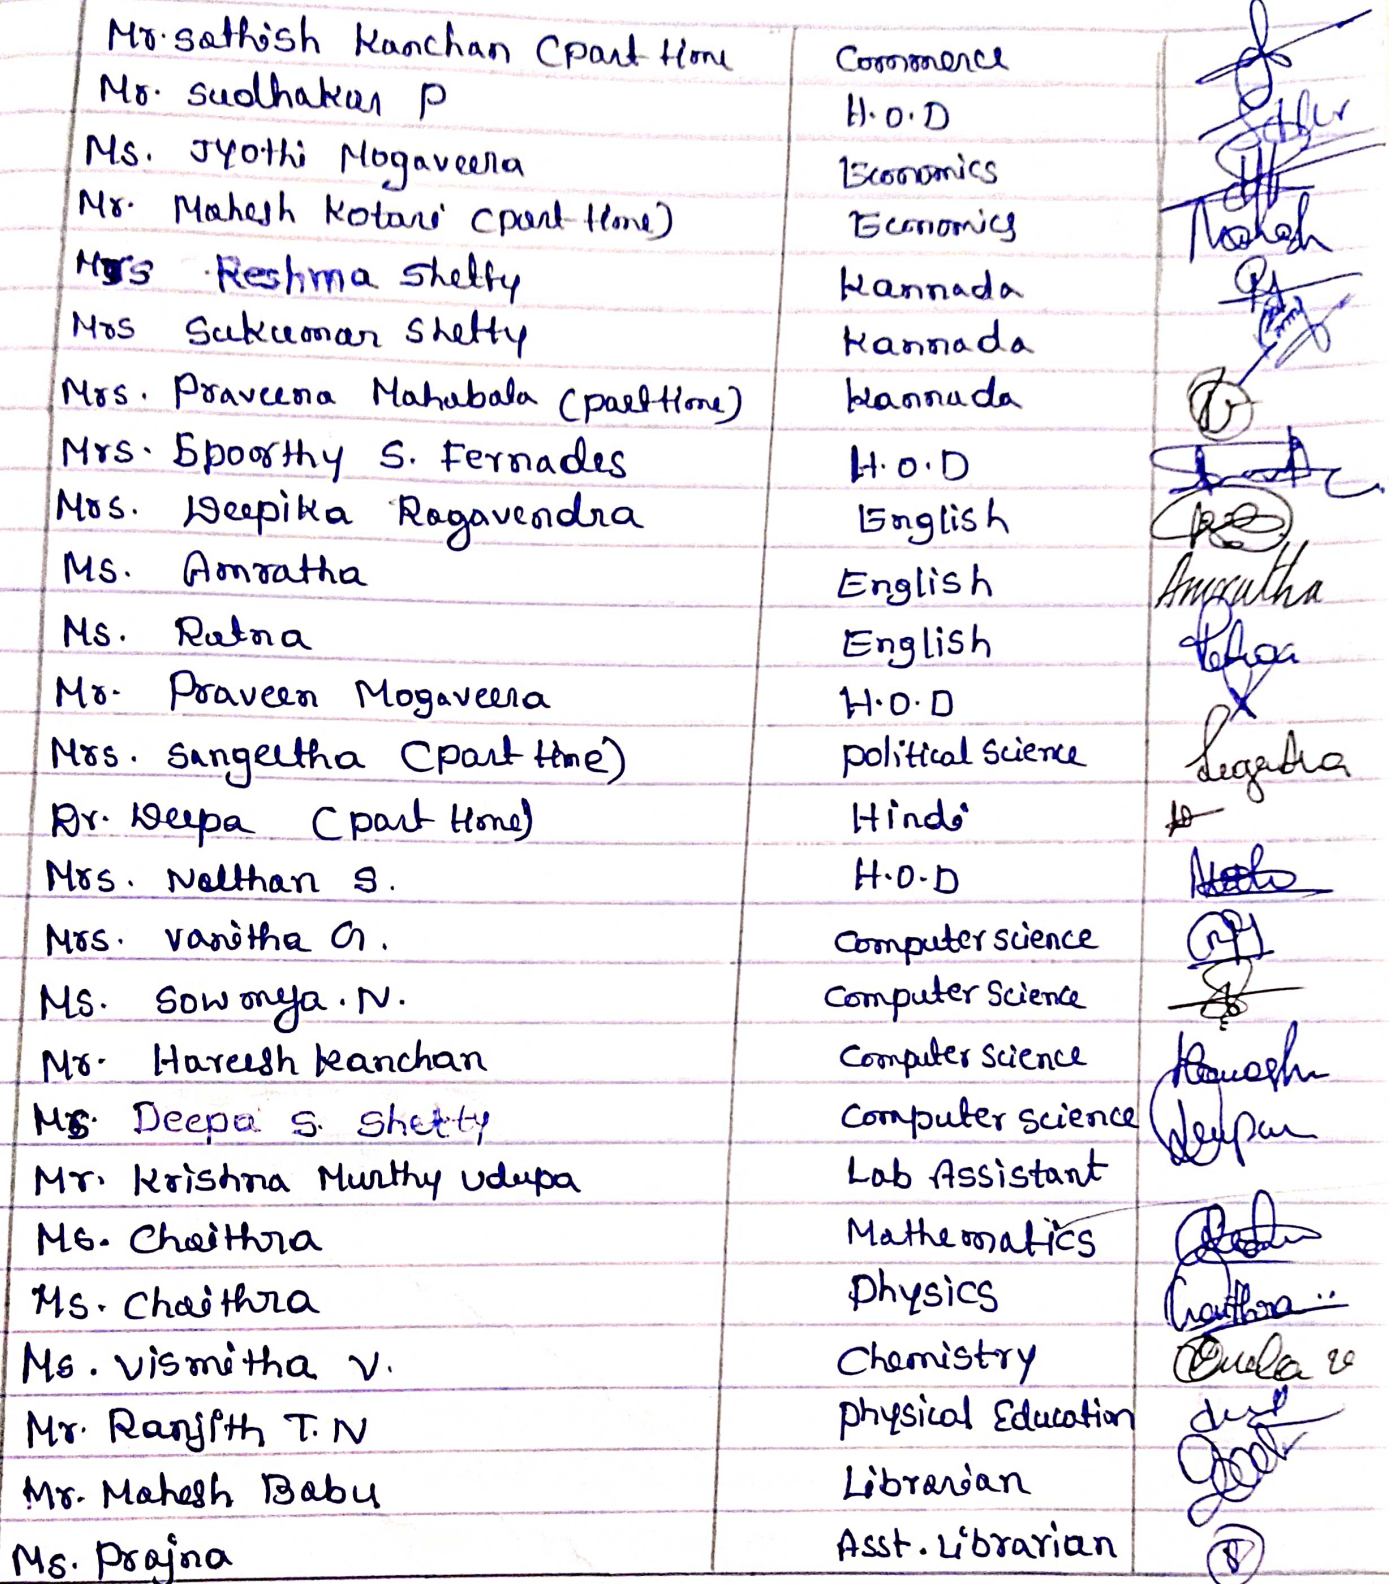 Mr. Sathish Kanchan (part time Commerce
Mr. Sudhakar P H.O.D
Ms. Jyothi Mogaveera Economics
Mr. Mahesh Kotari (part time) Economics Mahesh
Mrs Reshma Shetty Kannada
Mrs Sukumar Shetty Kannada
Mrs. Praveena Mahabala (part time) Kannada
Mrs. Spoorthy S. Fernades H.O.D
Mrs. Deepika Ragavendra English
Ms. Amratha English Amratha
Ms. Ratna English
Mr. Praveen Mogaveera H.O.D
Mrs. Sangeetha (part time) political science
Dr. Deepa (part time) Hindi
Mrs. Nalthan S. H.O.D
Mrs. Vanitha G. Computer science
Ms. Sowmya . N. Computer Science
Mr. Hareesh Kanchan Computer science
Ms. Deepa S. Shetty Computer science
Mr. Krishna Murthy Udupa Lab Assistant
Ms. Chaithra Mathematics
Ms. Chaithra Physics Chaithra
Ms. Vismitha V. Chemistry
Mr. Ranjith T. N Physical Education
Mr. Mahesh Babu Librarian
Ms. Prajna Asst. Librarian